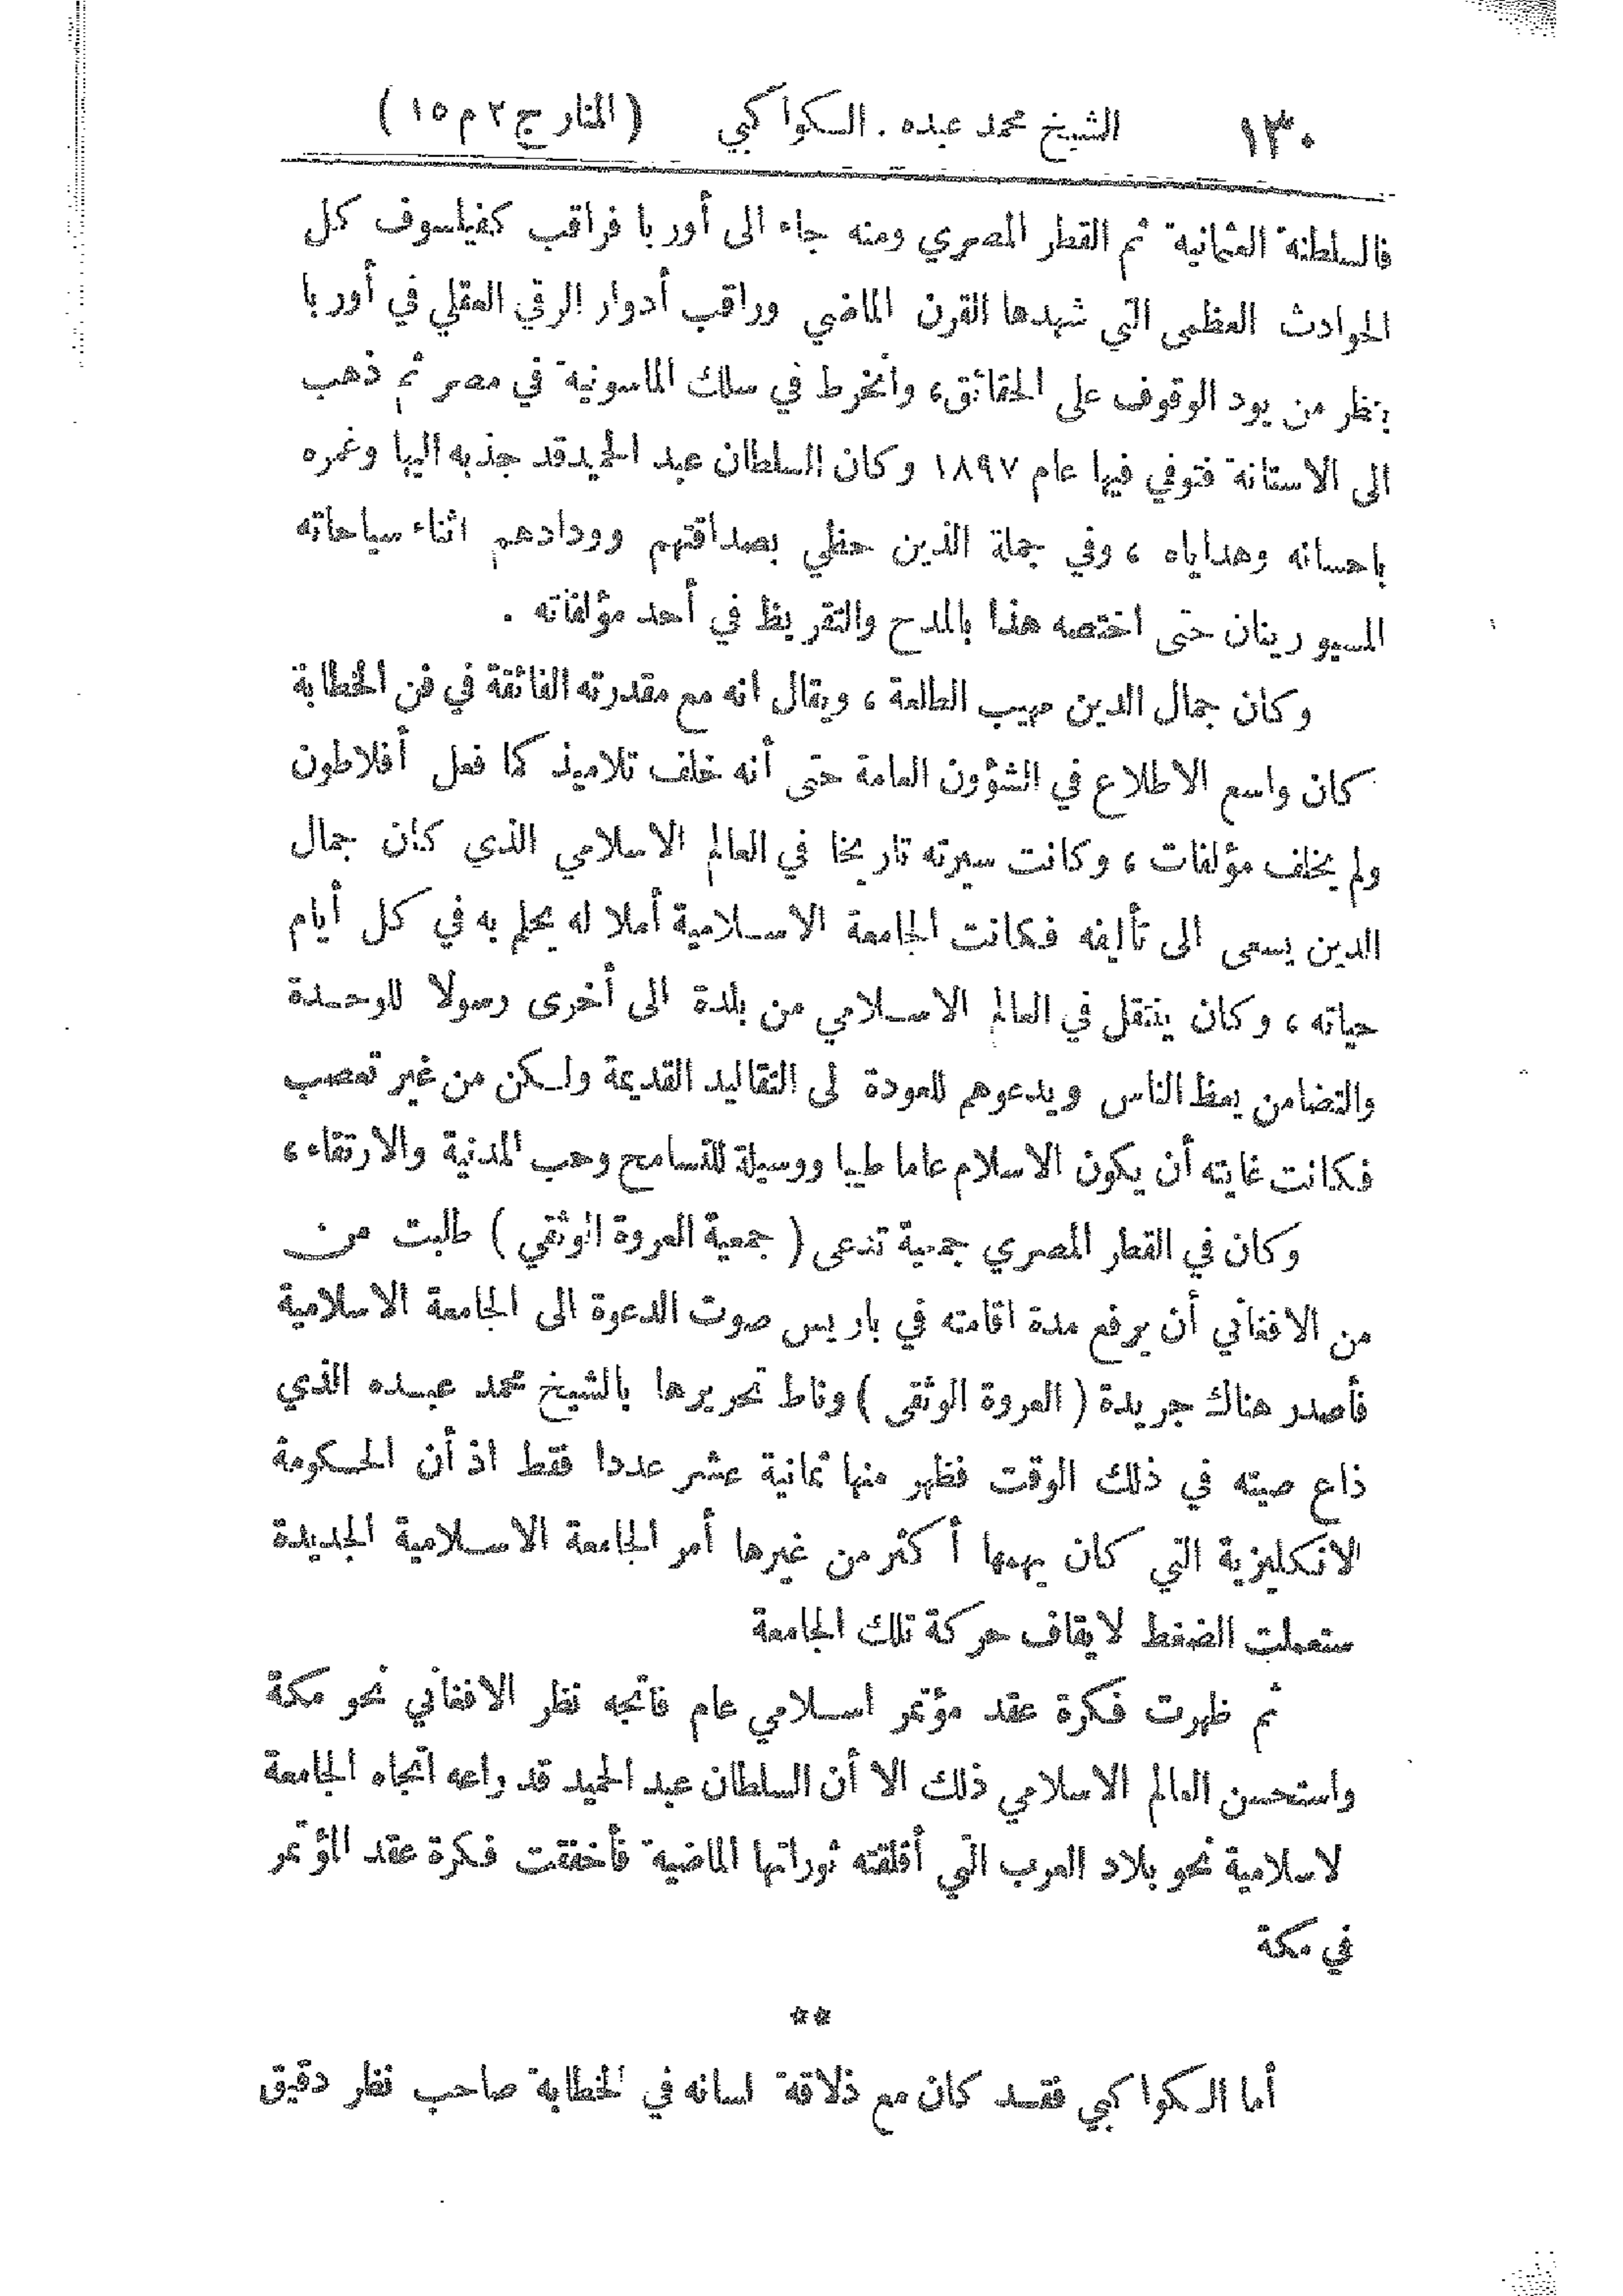 ١٣٠ الشيخ محمد عبده . السكواكبي (المنار ج ٢ م ١٥)
فالسلطنة العثمانية ثم القطر المصري ومنه جاء الى أوربا فراقب كفيلسوف كل
الحوادث العظمى التي شهدها القرن الماضي وراقب أدوار الرقي العقلي في أوربا
بنظر من يود الوقوف على الحقائق، وانخرط في سلك الماسونية في مصر ثم ذهب
الى الاستانة فتوفي فيها عام ١٨٩٧ وكان السلطان عبد الحميد قد جذبه اليها وغمره
باحسانه وهداياه ، وفي جملة الذين حظي بصداقتهم وودادهم اثناء سياحاته
المسيو رينان حتى اختصه هذا بالمدح والتقريظ في أحد مؤلفاته .
وكان جمال الدين مهيب الطلعة ، ويقال انه مع مقدرته الفائقة في فن الخطابة
كان واسع الاطلاع في الشؤون العامة حتى أنه خلف تلاميذ كما فعل أفلاطون
ولم يخلف مؤلفات ، وكانت سيرته تاريخا في العالم الاسلامي الذي كان جمال
الدين يسعى الى تأليفه فكانت الجامعة الاسلامية أملا له يحلم به في كل أيام
حياته ، وكان ينتقل في العالم الاسلامي من بلدة الى أخرى رسولا للوحدة
والتضامن يعظ الناس ويدعوهم للعودة لى التقاليد القديمة ولكن من غير تعصب
فكانت غايته أن يكون الاسلام عاما طيبا ووسيلة للتسامح وحب المدنية والارتقاء ،
وكان في القطر المصري جمعية تدعى ( جمعية العروة الوثقي ) طالبت من
من الافغاني أن يرفع مدة اقامته في باريس صوت الدعوة الى الجامعة الاسلامية
فأصدر هناك جريدة ( العروة الوثقى ) وناط تحريرها بالشيخ محمد عبده الذي
ذاع صيته في ذلك الوقت فظهر منها ثمانية عشر عددا فقط اذ أن الحكومة
الانكليزية التي كان يهمها أكثر من غيرها أمر الجامعة الاسلامية الجديدة
ستعملت الضغط لايقاف حركة تلك الجامعة
ثم ظهرت فكرة عقد مؤتمر اسلامي عام فاتجه نظر الافغاني نحو مكة
واستحسن العالم الاسلامي ذلك الا أن السلطان عبد الحميد قد راعه اتجاه الجامعة
لاسلامية نحو بلاد العرب التي أقلقته ثوراتها الماضية فأخفقت فكرة عقد المؤتمر
في مكة
**
أما الكواكبي فقد كان مع ذلاقة لسانه في الخطابة صاحب نظر دقيق